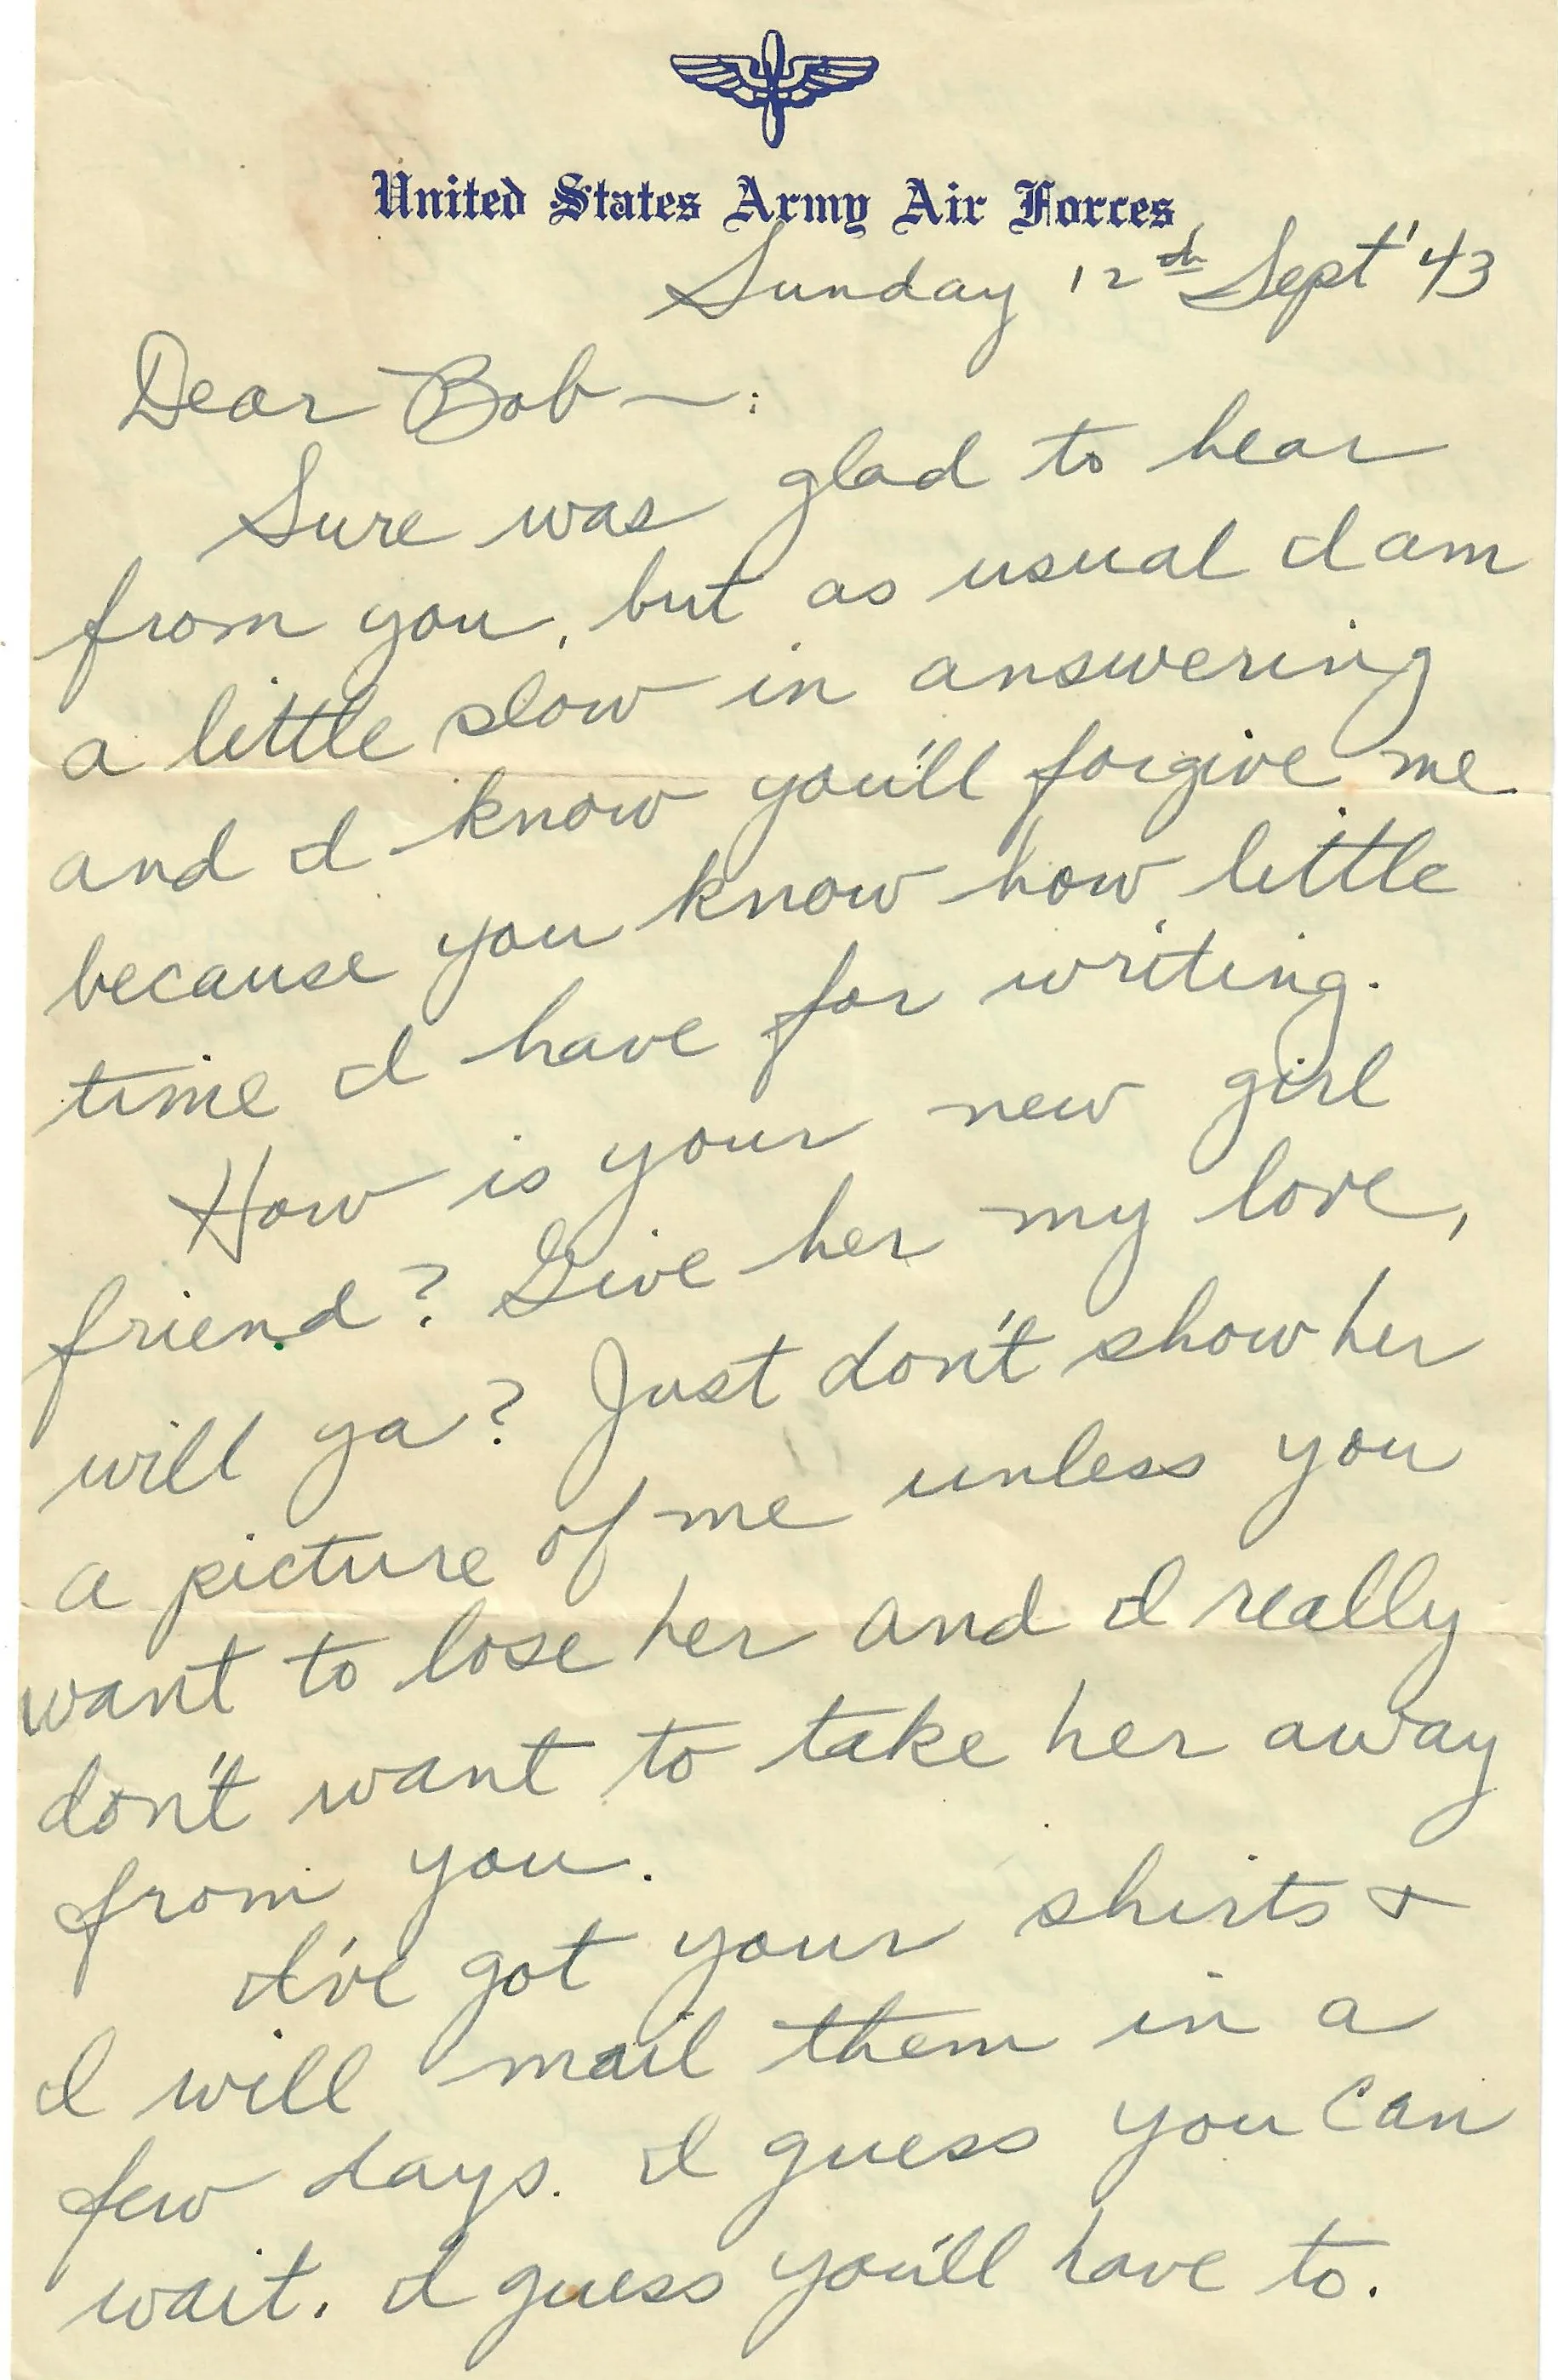 United States Army Air Forces
Sunday 12th Sept '43
Dear Bob —:
Sure was glad to hear
from you, but as usual I am
a little slow in answering
and I know you'll forgive me
because you know how little
time I have for writing.
How is your new girl
friend? Give her my love,
will ya? Just don't show her
a picture of me unless you
want to lose her and I really
don't want to take her away
from you.
I've got your shirts &
I will mail them in a
few days. I guess you can
wait. I guess you'll have to.